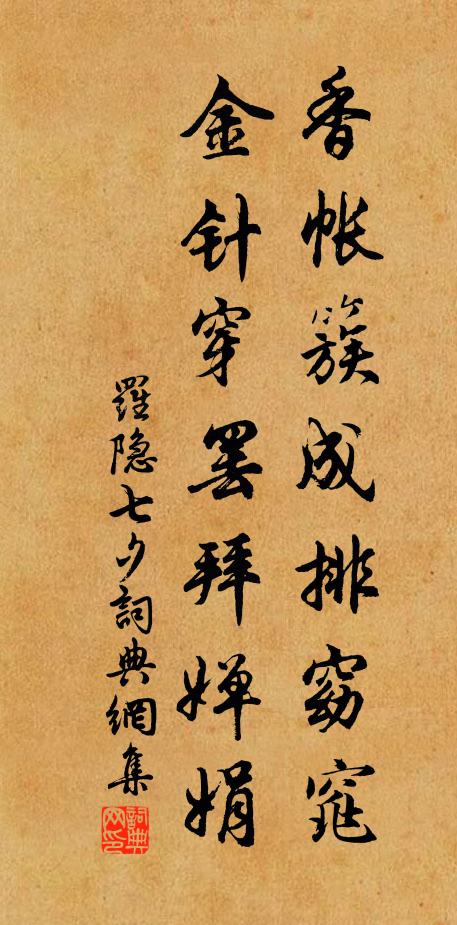 香帐簇成排窈窕
金针穿罢拜婵娟
羅隐七夕詞典網集
詞典网印